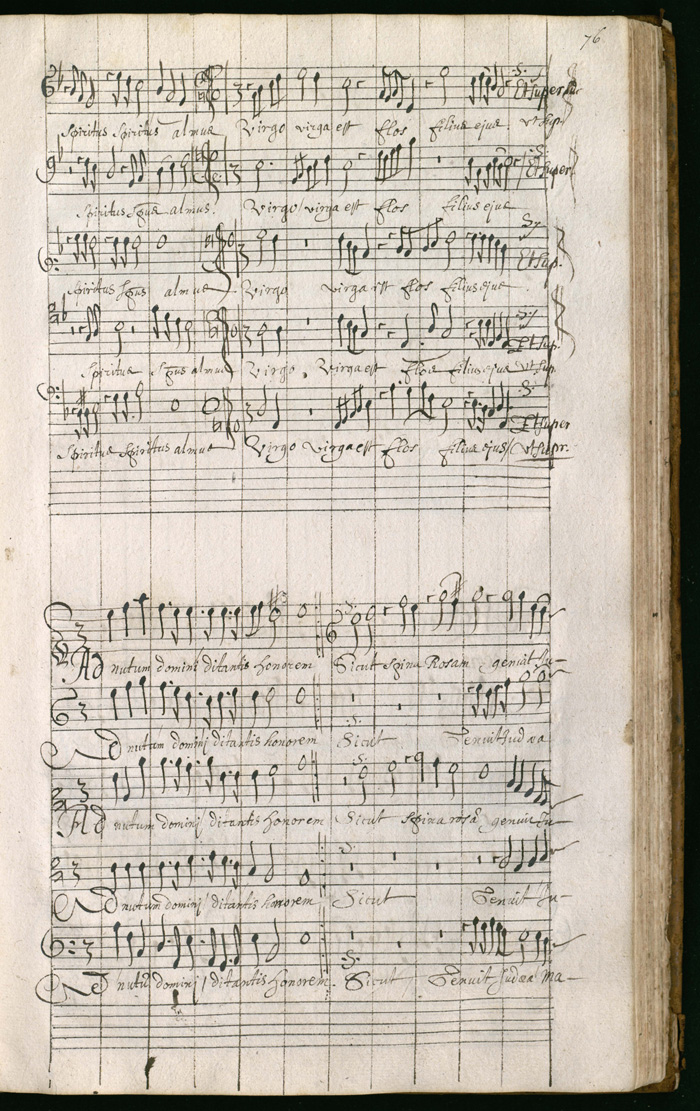 76
Et super
Spiritus Spiritus almus Virgo virga est flos filius ejus. vt supr
Et super
Spiritus Spũs almus. Virgo virga est flos filius ejus
Et sup.
Spiritus Spũs almus Virgo virga est flos filius ejus
Et sup.
Spiritus Spũs almus Virgo, Virga est flos filius ejus vt sup.
Et super
Spiritus Spiritus almus Virgo virga est flos filius ejus vt supr.
Ad nutum domini ditantis honorem Sicut spina Rosam genuit Ju-
Ad nutum dominj ditantis honorem Sicut Genuit Judæa
Ad nutum dominj ditantis honorem Sicut spina rosã genuit Ju-
Ad nutum dominj ditantis honorem Sicut Genuit Ju-
Ad nutũ dominj ditantis honorem. Sicut Genuit Judæa Ma-